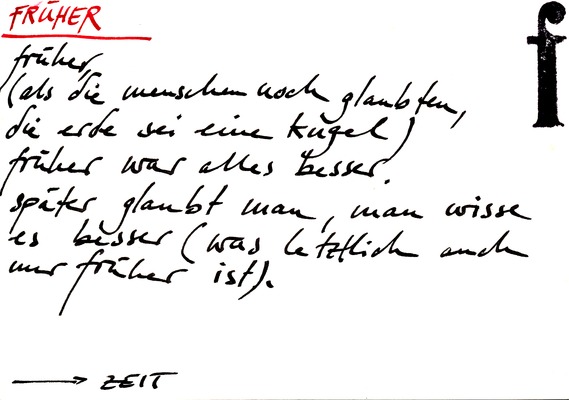 FRÜHER
f
früher,
(als die menschen noch glaubten,
die erde sei eine kugel)
früher war alles besser.
später glaubt man, man wisse
es besser (was letztlich auch
nur früher ist).
→ ZEIT